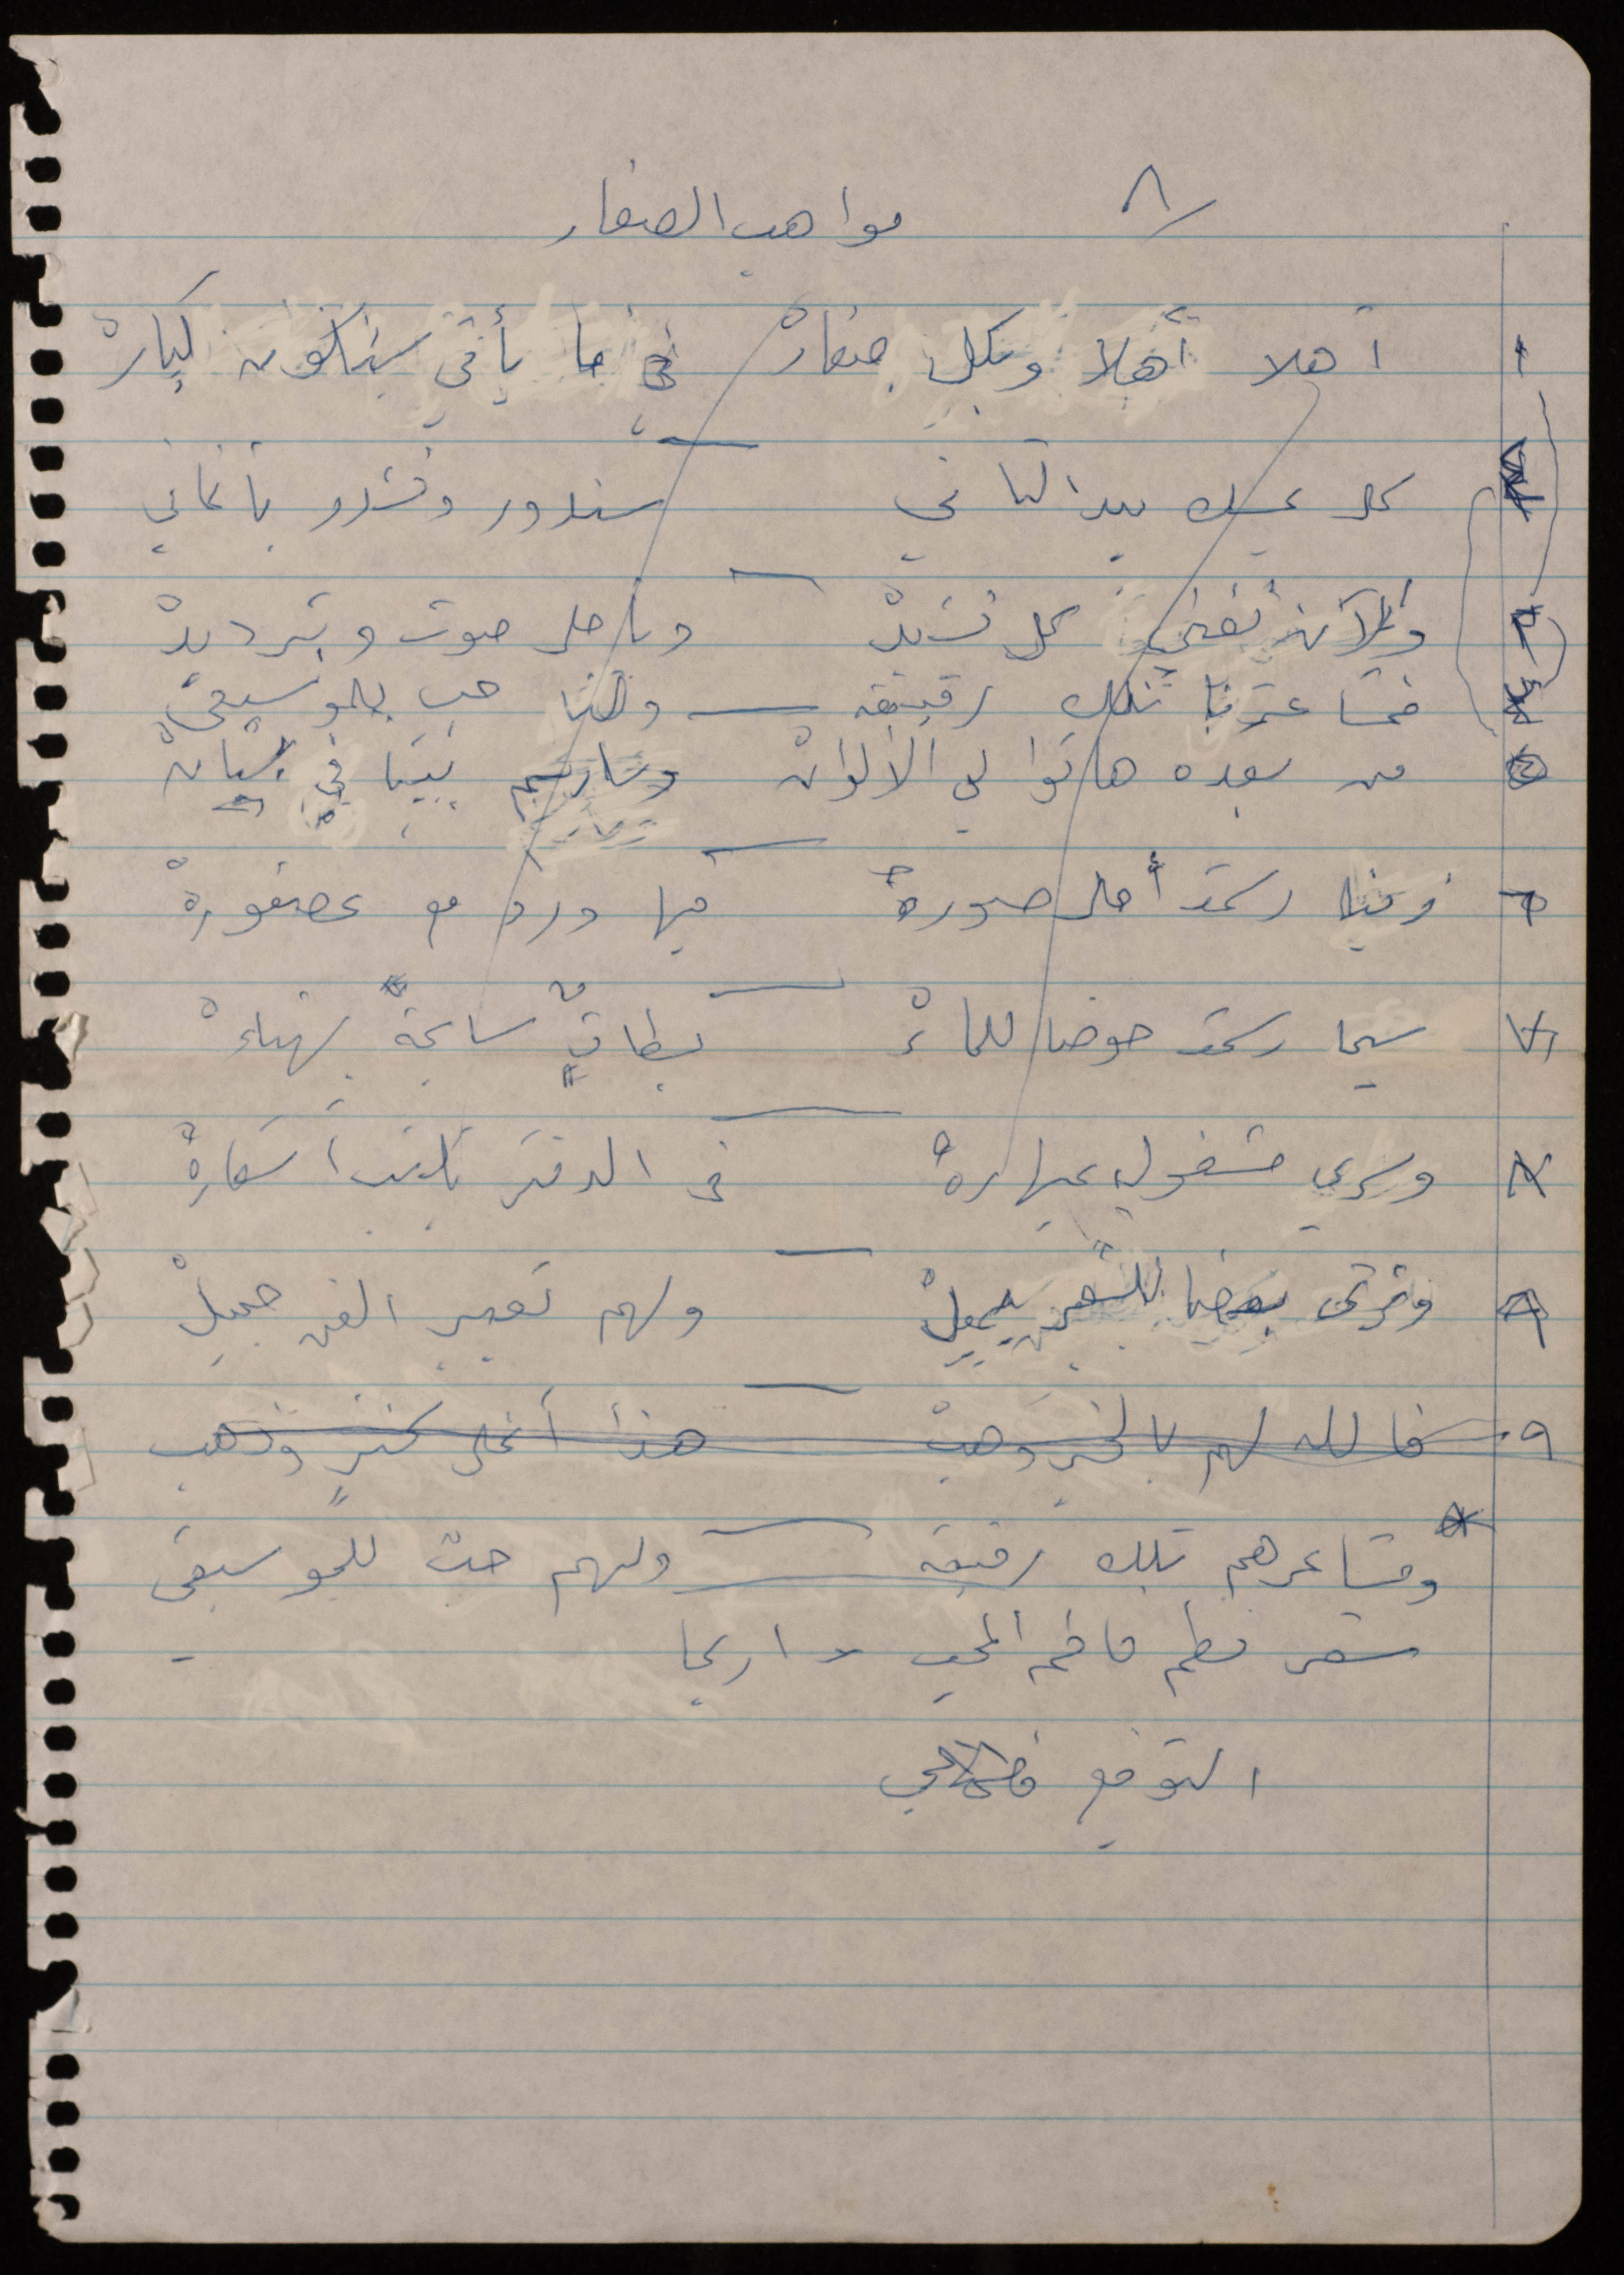 ٨ مواهب الصغار
١ أهلا أهلا وبكل صغارْ في ما يأتي سنكون كبارْ
كل يمسك بيد الثاني سندور ونشدو بأغاني
والآن نغني كل نشيدْ وبأحلى صوت وبترديدْ
فمشاعرنا تلك رقيقه ولنا حب بالموسيقى
من بعده هاتوا لي الألوانْ وسأرسم بيتا في بستانْ
٦ رسمت أحلى صورةْ فيها ورد مع عصفورةْ
٧ رسمت حوضا للماءْ بطاتٌ سابحةٌ بهناءْ
٨ مشغول بمهارةْ في الدفتر يكتب أشعارهْ
٩ وترى بعضا للشعر يميلْ ولهم تعبير الفن جميلْ
٩ فالله لهم بالخير وهبْ هذا أغلى كنزٍ وذهب
ومشاعرهم تلك رقيقه ولهم حب للموسيقى
شعر فطم المحب أريحا
التوقيع